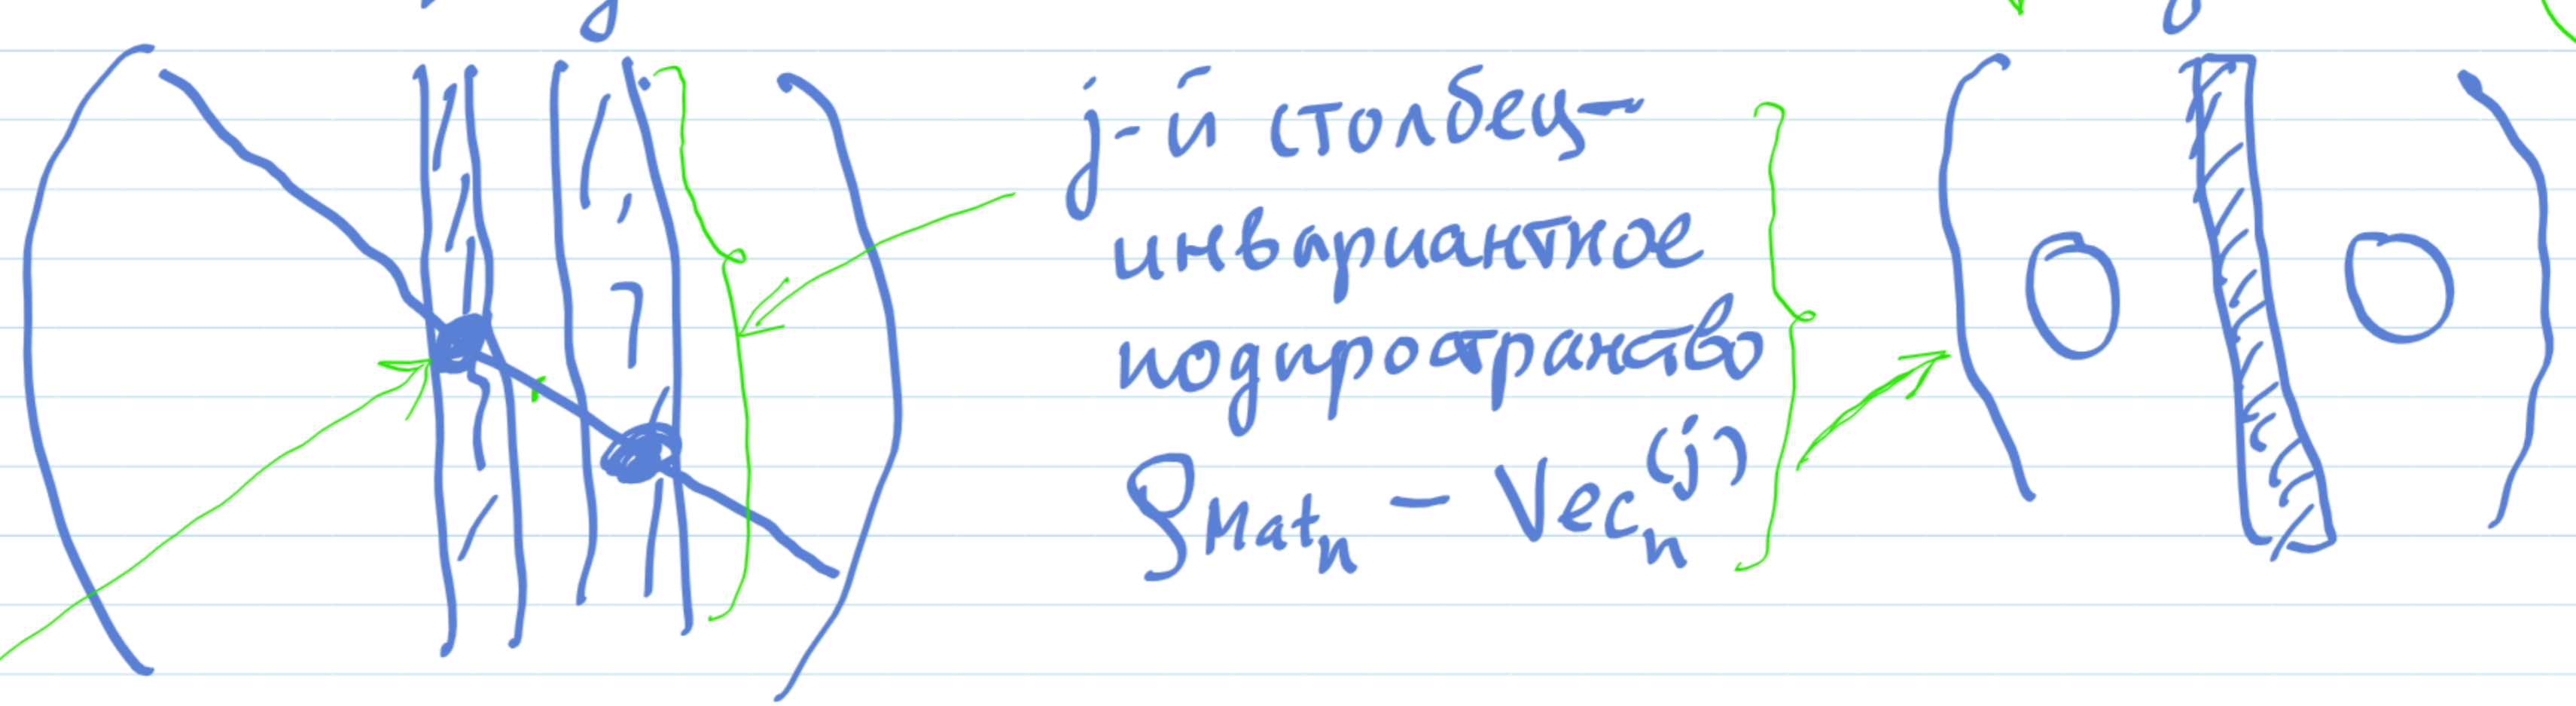 j-й столбец—
инвариантное
подпространство
ρ Mat_n — Vec_n^(j)
0 0